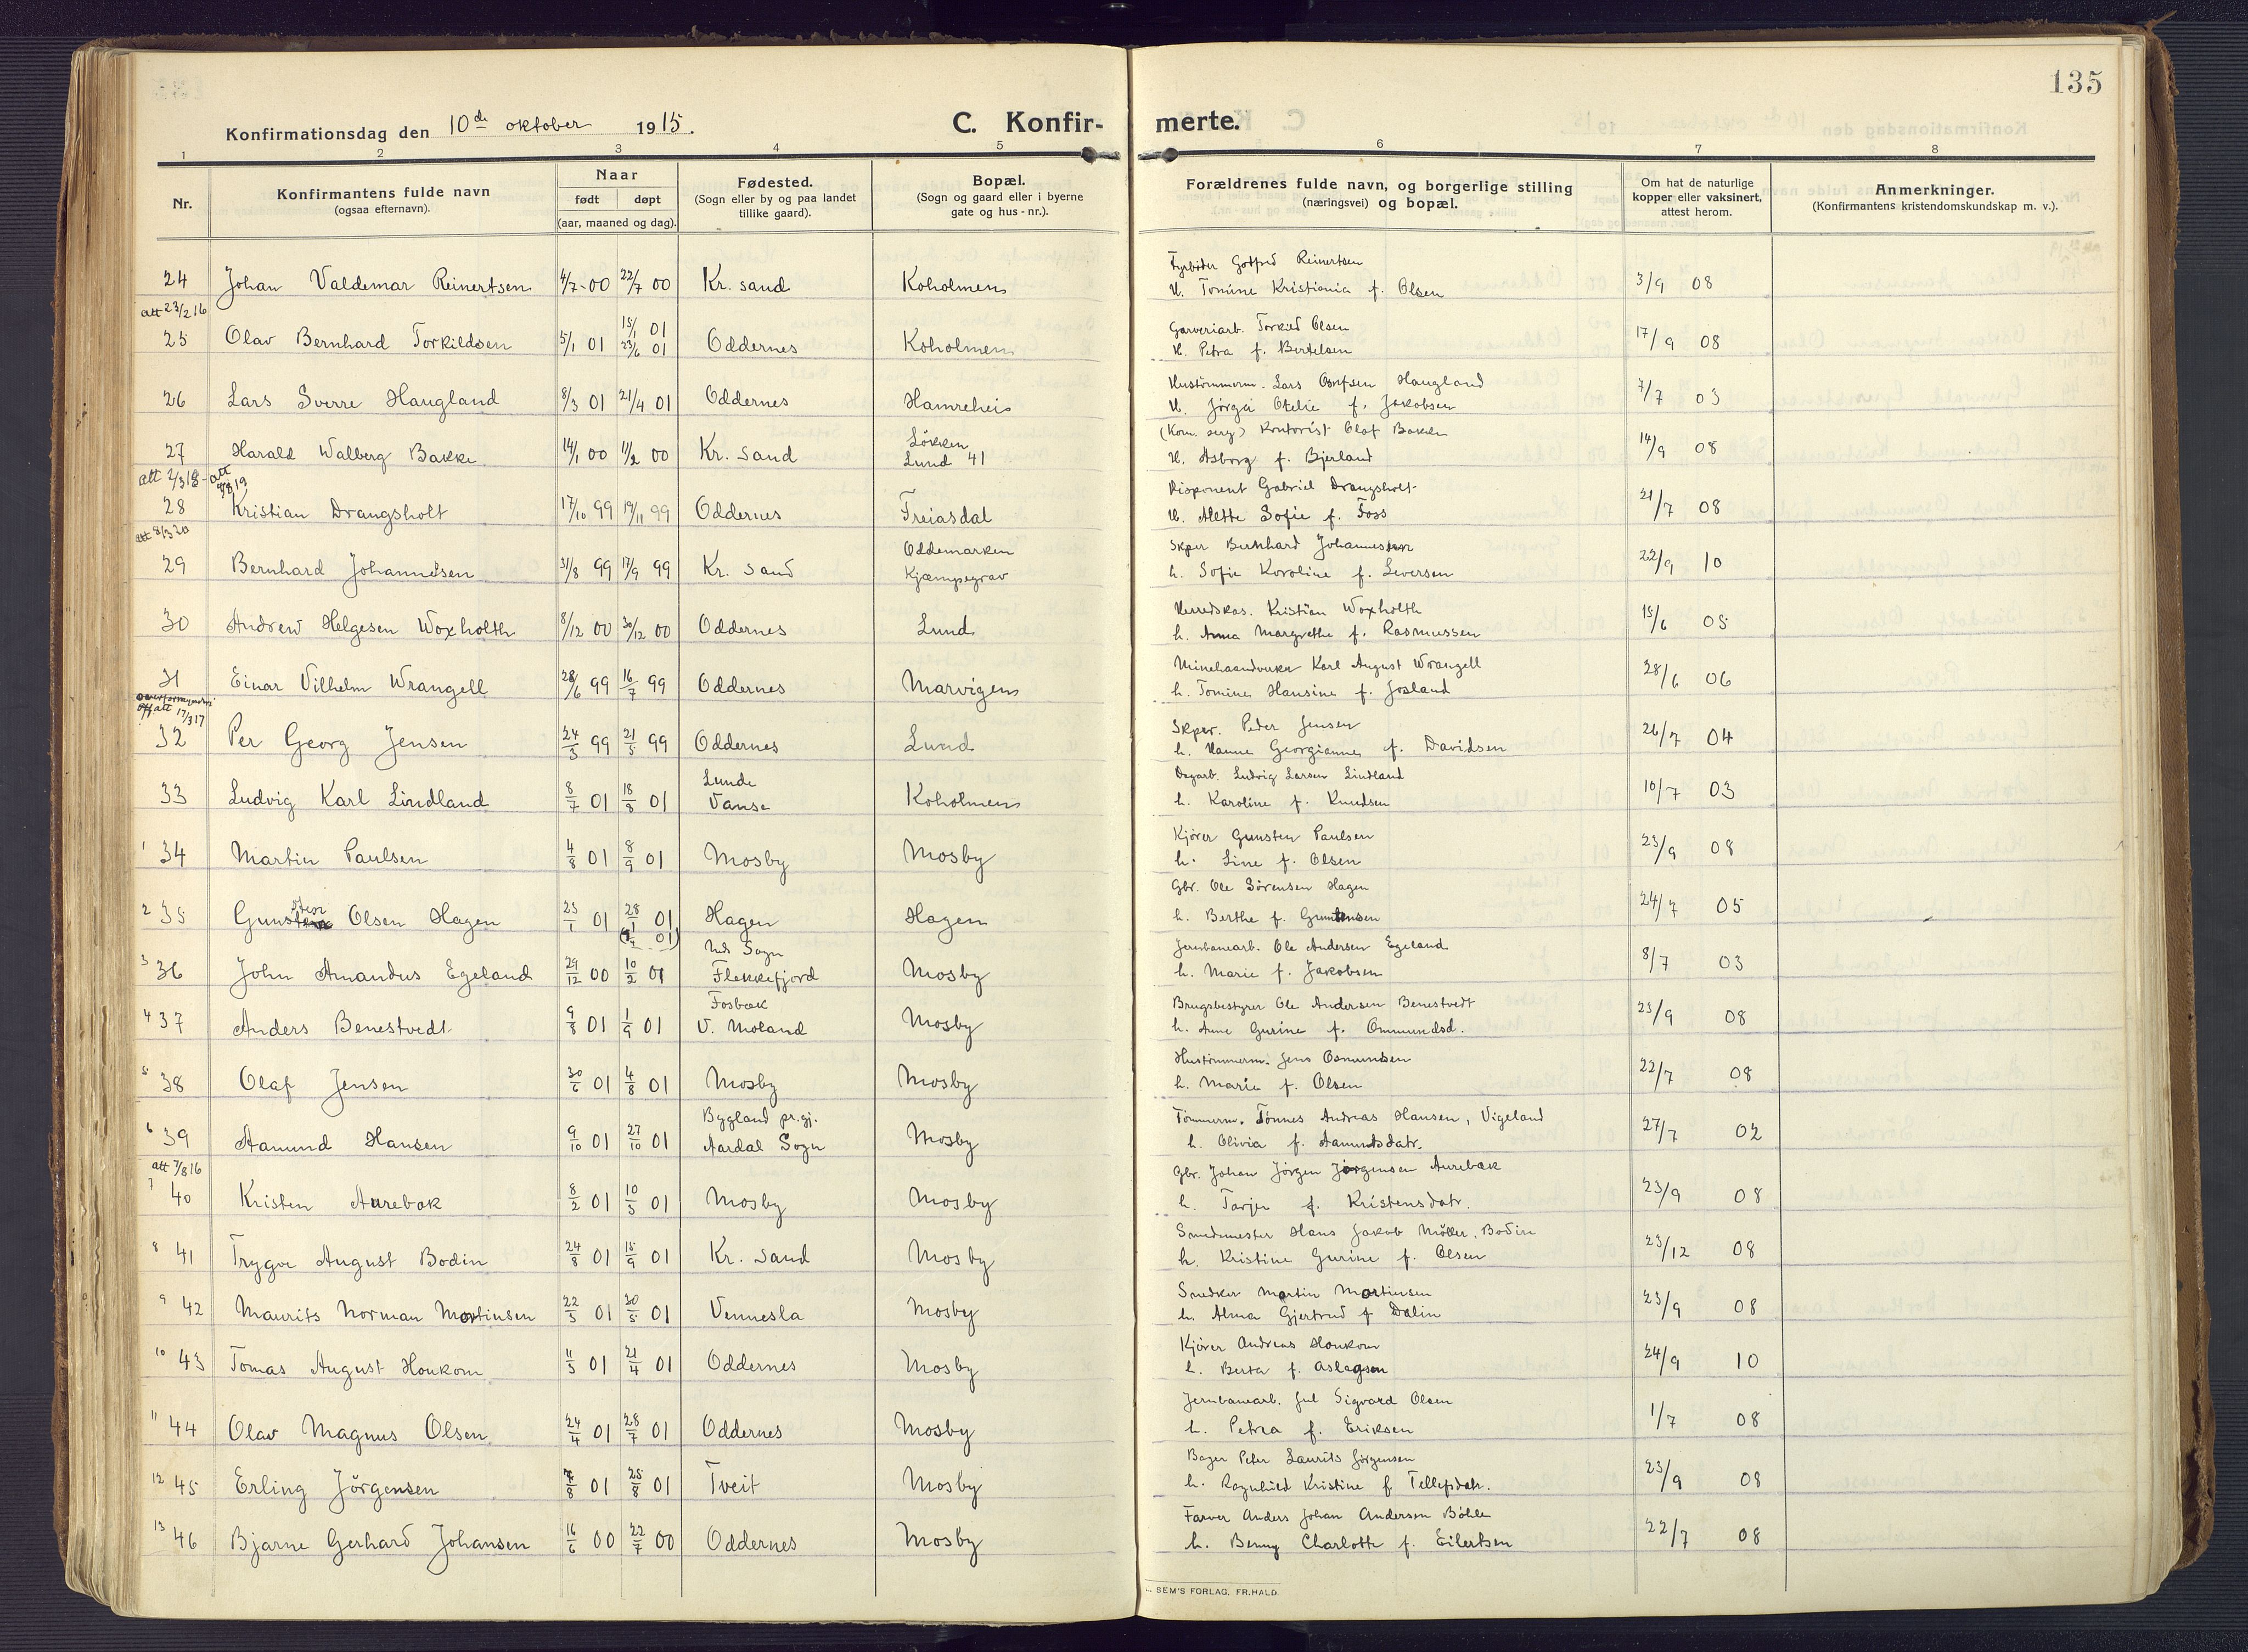 135
Konfirmationsdag den 10de oktober 1915.
C. Konfir- merte.
1 2 3 4 5 6 7 8
Nr.
Konfirmantens fulde navn
(ogsaa efternavn).
Naar
født døpt
(aar, maaned og dag).
Fødested.
(Sogn eller by og paa landet
tillike gaard).
Bopæl.
(Sogn og gaard eller i byerne
gate og hus-nr.).
Forældrenes fulde navn, og borgerlige stilling
(næringsvei) og bopæl.
Om hat de naturlige
kopper eller vaksinert,
attest herom.
Anmerkninger.
(Konfirmantens kristendomskundskap m. v.).
Fyrbøter Gotfred Reinertsen
24 Johan Valdemar Reinertsen 4/7-00 22/7 00 Kr. sand Koholmen H. Tomine Kristiania f. Olsen 3/9 08
att 23/2 16
15/1 01 Garveriarb. Torkild Olsen
25 Olav Bernhard Torkildsen 5/1 01 23/6 01 Oddernes Koholmen H. Petra f. Bertelsen 17/9 08
Hustømmerm. Lars Haugland
26 Lars Sverre Haugland 8/3 01 21/4 01 Oddernes Hamreheia H. Jörgine Otelie f. Jakobsen 7/7 03
Løkken Kontorist Olaf Bakke
27 Harald Walberg Bakke 14/1 00 11/2 00 Kr. sand Lund 41 H. Asborg f. Bjerland 14/9 08
att 2/3 18 - att
Disponent Gabriel Drangsholt
28 Kristian Drangsholt 17/10 99 19/11 99 Oddernes Freiasdal H. Alette Sofie f. Foss 21/7 08
att 8/3 20
Oddemarken Skper Bernhard Johannessen
29 Bernhard Johannesen 31/8 99 17/9 99 Kr. sand Kjæmpegrav h. Sofie Karoline f. Seversen 22/9 10
Herredskas. Kristian Woxholth
30 Andrew Helgesen Woxholth 8/12 00 30/12 00 Oddernes Lund h. Anna Margrethe f. Rasmussen 15/6 05
Minehaandverker Karl August Wrangell
31 Einar Vilhelm Wrangell 28/6 99 16/7 99 Oddernes Marvigen h. Tomine Hansine f. Josland 28/6 06
att 17/3 17
Skper. Peder Jensen
32 Per Georg Jensen 24/3 99 21/5 99 Oddernes Lund h. Hanne Georgianne f. Davidsen 26/7 04
Lunde Dagarb. Ludvig Larsen Lindland
33 Ludvig Karl Lindland 8/7 01 18/8 01 Vanse Koholmen h. Karoline f. Knudsen 10/7 03
Kjører Gunsten Paulsen
1 34 Martin Paulsen 4/8 01 8/9 01 Mosby Mosby h. Line f. Olsen 23/9 08
Gbr. Ole Sörensen Hagen
2 35 Gunstein Olsen Hagen 23/1 01 28/1 01 Hagen Hagen h. Berthe f. Gunstensen 24/7 05
Neds Sogn Jernbanearb. Ole Andersen Egeland
3 36 John Amandus Egeland 29/12 00 10/2 01 Flekkefjord Mosby h. Marie f. Jakobsen 8/7 03
Fosbæk Brugsbestyrer Ole Andersen Benestvedt
4 37 Anders Benestvedt 9/8 01 1/9 01 V. Moland Mosby h. Anne Gurine f. Ommundsd. 23/9 08
Hustømmerm. Jens Osmundsen
5 38 Olaf Jensen 30/6 01 4/8 01 Mosby Mosby h. Marie f. Olsen 22/7 08
Bygland pr.gj. Tømmerm. Tönnes Andreas Hansen, Vigeland
6 39 Aamund Hansen 9/10 01 27/10 01 Aardal Sogn Mosby h. Olivia f. Aamundsdatr. 27/7 02
att 7/8 16
Gbr. Johan Jörgen Jörgensen Aurebæk
7 40 Kristen Aurebæk 8/2 01 10/3 01 Mosby Mosby h. Tarjer f. Kristensdatr. 23/9 08
Smedmester Hans Jakob Möller, Bodin
8 41 Trygve August Bodin 24/8 01 15/9 01 Kr. sand Mosby h. Kristine Gurine f. Olsen 23/12 08
Snedker Martin Martinsen
9 42 Maurits Norman Martinsen 22/3 01 20/5 01 Vennesla Mosby h. Alma Gjertrud f. Dalin 23/9 08
Kjører Andreas Honkom
10 43 Tomas August Honkom 11/3 01 21/4 01 Oddernes Mosby h. Berta f. Aslagsen 24/9 10
Jernbanearb. Jul Sigvard Olsen
11 44 Olav Magnus Olsen 24/4 01 28/7 01 Oddernes Mosby h. Petra f. Eriksen 1/7 08
Bager Peter Laurits Jörgensen
12 45 Erling Jörgensen 7/8 01 25/8 01 Tveit Mosby h. Ragnhild Kristine f. Tellefsdatr. 23/9 08
Farver Anders Johan Andersen Böhle
13 46 Bjarne Gerhard Johansen 16/6 00 22/7 00 Oddernes Mosby h. Benny Charlotte f. Eilertsen 22/7 08
SEM'S FORLAG, FR.HALD.